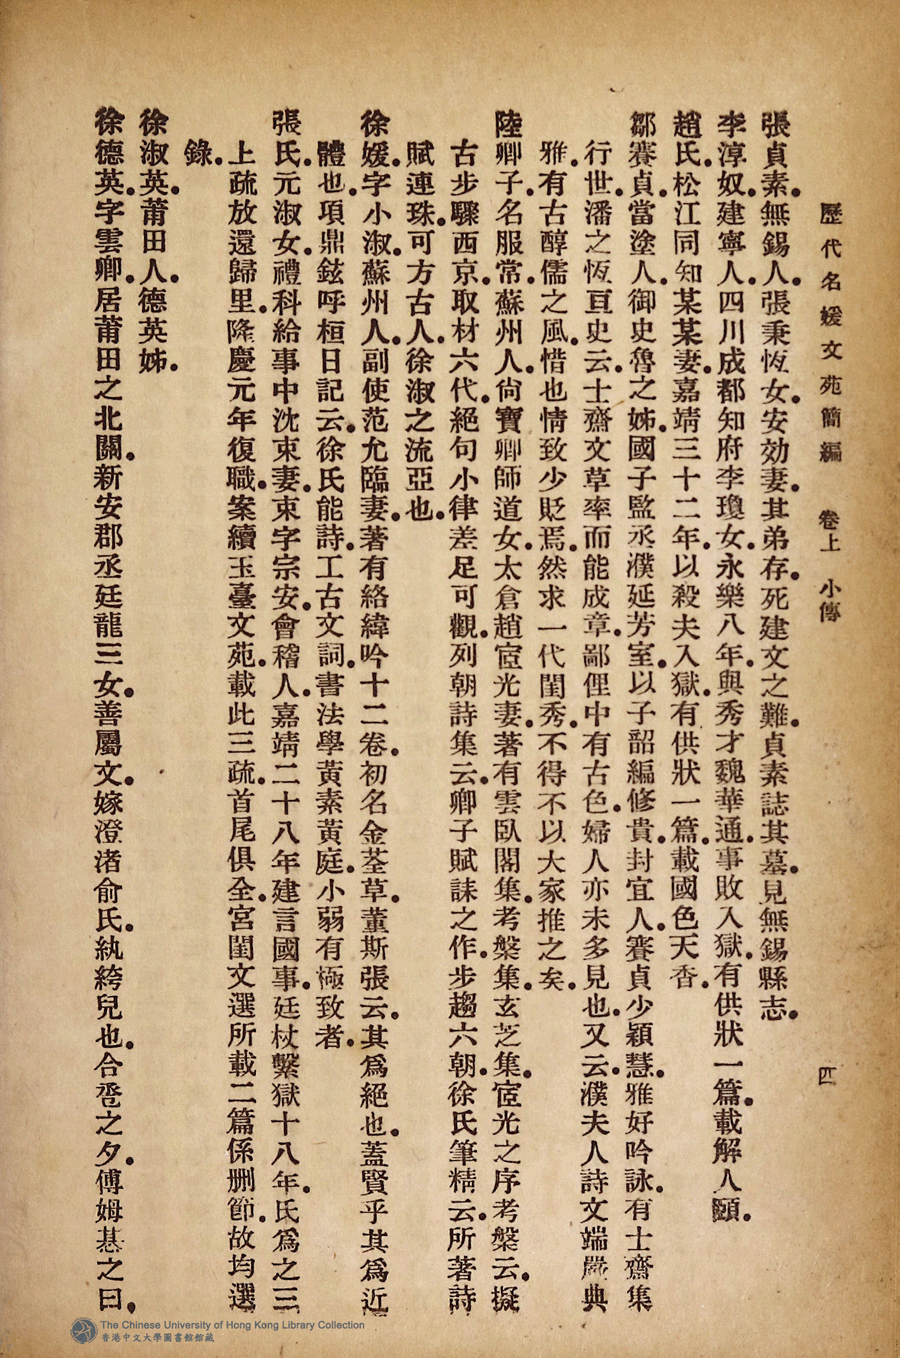 歷代名媛文苑簡編　卷上　小傳　四
張貞素。無錫人。張秉恆女。安効妻。其弟存。死建文之難。貞素誌其墓。見無錫縣志。
李淳奴。建寧人。四川成都知府李瓊女。永樂八年。與秀才魏華通。事敗入獄。有供狀一篇。載解人頤。
趙氏。松江同知某某妻。嘉靖三十二年。以殺夫入獄。有供狀一篇。載國色天香。
鄒賽貞。當塗人。御史魯之姊。國子監丞濮延芳室。以子韶編修貴。封宜人。賽貞少穎慧。雅好吟詠。有士齋集
行世。潘之恆亘史云。士齋文草率而能成章。鄙俚中有古色。婦人亦未多見也。又云。濮夫人詩文端嚴典
雅。有古醇儒之風。惜也情致少貶焉。然求一代閨秀。不得不以大家推之矣。
陸卿子。名服常。蘇州人。尙寶卿師道女。太倉趙宧光妻。著有雲臥閣集。考槃集。玄芝集。宧光之序考槃云。擬
古步驟西京。取材六代。絕句小律差足可觀。列朝詩集云。卿子賦誄之作。步趨六朝。徐氏筆精云。所著詩
賦連珠。可方古人。徐淑之流亞也。
徐媛。字小淑。蘇州人。副使范允臨妻。著有絡緯吟十二卷。初名金荃草。董斯張云。其爲絕也。蓋賢乎其爲近
體也。項鼎鉉呼桓日記云。徐氏能詩。工古文詞。書法學黃素黃庭。小弱有極致者。
張氏。元淑女。禮科給事中沈束妻。束字宗安。會稽人。嘉靖二十八年建言國事。廷杖繫獄十八年。氏爲之三
上疏。放還歸里。隆慶元年復職。案續玉臺文苑。載此三疏。首尾俱全。宮閨文選所載二篇係删節。故均選
錄。
徐淑英。莆田人。德英姊。
徐德英。字雲卿。居莆田之北關。新安郡丞廷龍三女。善屬文。嫁澄渚俞氏。紈絝兒也。合巹之夕。傅姆惎之曰。
The Chinese University of Hong Kong Library Collection
香港中文大學圖書館館藏